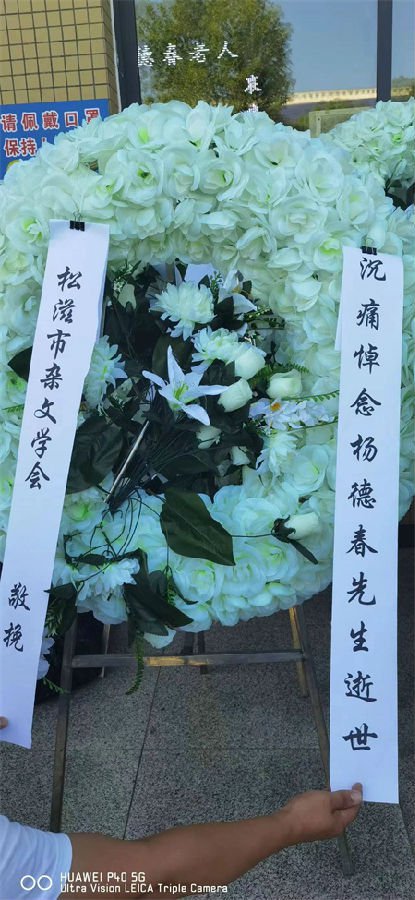 德春老人
请佩戴口罩
保持
沉痛悼念杨德春先生逝世
松滋市杂文学会 敬挽
HUAWEI P40 5G
Ultra Vision LEICA Triple Camera